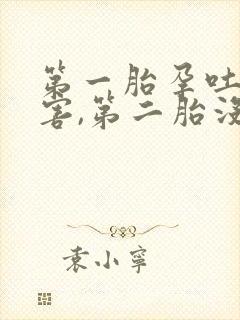 第一胎孕吐
害,第二胎没
袁小寧